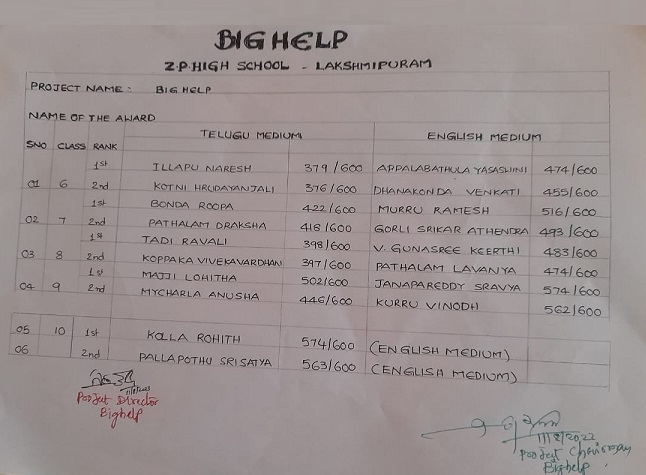 BIG HELP
Z.P. HIGH SCHOOL - LAKSHMIPURAM
PROJECT NAME : BIG HELP
NAME OF THE AWARD
TELUGU MEDIUM ENGLISH MEDIUM
SNO CLASS RANK
1st ILLAPU NARESH 379/600 APPALABATHULA YASASWINI 474/600
01 6 2nd KOTNI HRUDAYANJALI 376/600 DHANAKONDA VENKATI 455/600
1st BONDA ROOPA 422/600 MURRU RAMESH 516/600
02 7 2nd PATHALAM DRAKSHA 416/600 GORLI SRIKAR ATHENDRA 493/600
1st TADI RAVALI 398/600 V. GUNASREE KEERTHI 483/600
03 8 2nd KOPPAKA VIVEKAVARDHAN 397/600 PATHALAM LAVANYA 474/600
1st MAJJI LOHITHA 502/600 JANAPAREDDY SRAVYA 574/600
04 9 2nd MYCHARLA ANUSHA 446/600 KURRU VINODH 562/600
05 10 1st KOLLA ROHITH 574/600 (ENGLISH MEDIUM)
06 2nd PALLAPOTHU SRI SATYA 563/600 (ENGLISH MEDIUM)
Project Director
Bighelp
11/2/2022
Project
Bighelp